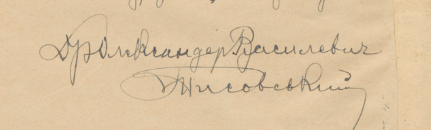 Др Олександер Василевич
Тисовський